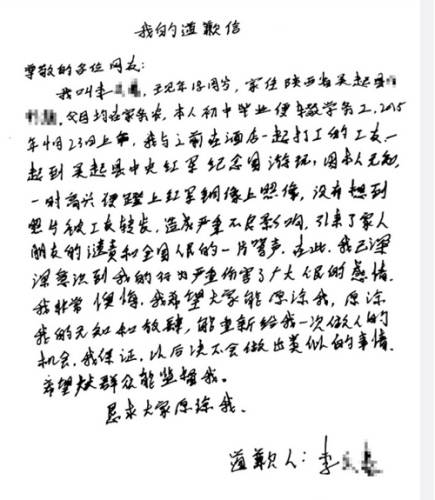 我的道歉信
尊敬的各位网友:
我叫李 ,王现年18周岁,家住陕西省吴起县
,父母均在家务农,本人初中毕业便辍学务工,2015
年4月23日上午,我与之前在酒店一起打工的工友一
起到吴起县中央红军纪念园游玩,因本人无知,
一时高兴便蹬上红军铜像上照像,没有想到
照片被工友转发,造成严重不良影响,引来了家人
朋友的谴责和全国人民的一片骂声,在此,我已深
深意识到我的行为严重伤害了广大人民的感情.
我非常懊悔,我希望大家能原谅我,原谅
我的无知和放肆,能重新给我一次做人的
机会,我保证,以后决不会做出类似的事情.
希望 群众能监督我。
恳求大家原谅我.
道歉人:李